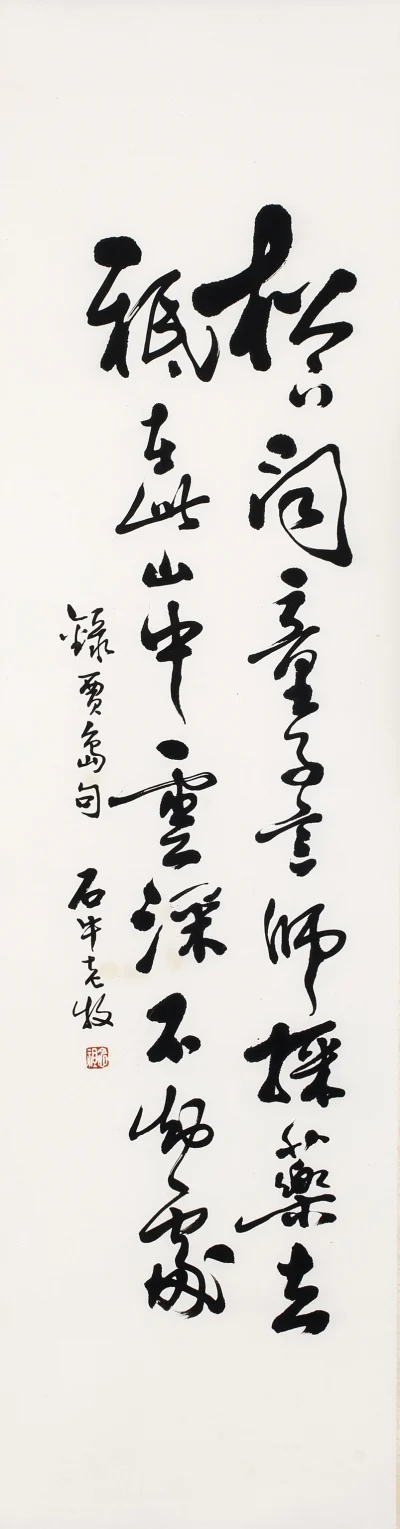 松下問童子言師採藥去
祗在此山中雲深不知處
錄賈島句 石牛老牧